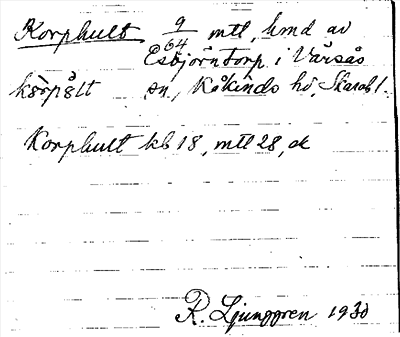 Korphult 9/64 mtl, hmd av
Esbjörntorp i Värsås
kȯrpålt sn., Kåkinds hd, Skarab l.
Korphult kb 18, mtl 28, ek
R. Ljunggren 1930